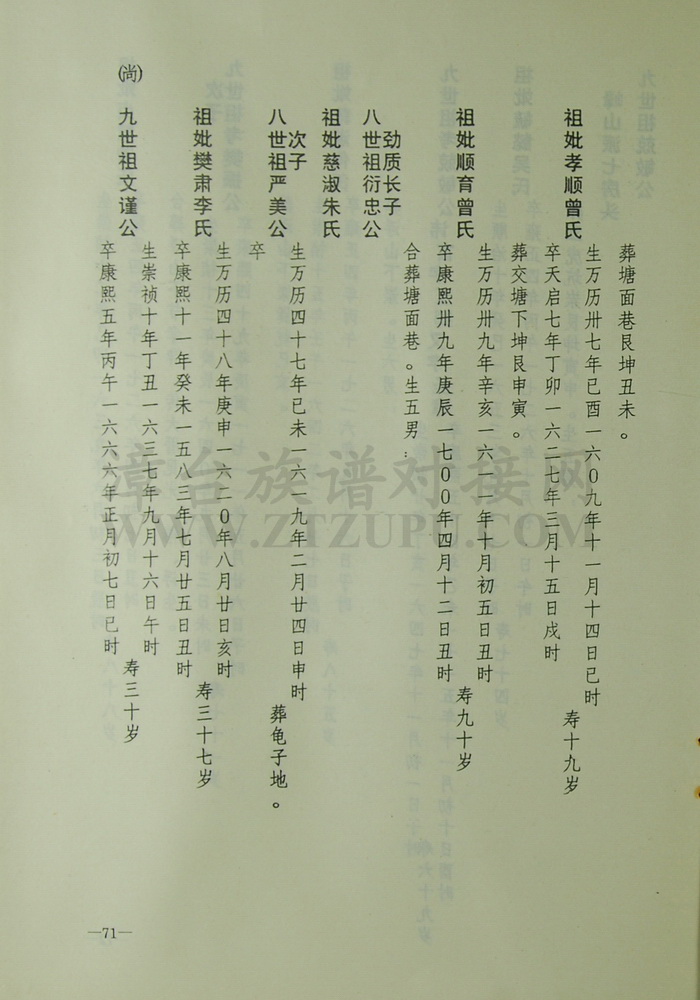 葬塘面巷艮坤丑未。
祖妣孝顺曾氏
生万历卅七年已酉一六0九年十一月十四日已时
卒天启七年丁卯一六二七年三月十五日戌时
寿十九岁
葬交塘下坤艮申寅。
祖妣顺育曾氏
生万历卅九年辛亥一六一一年十月初五日丑时
卒康熙卅九年庚辰一七00年四月十二日丑时
寿九十岁
合葬塘面巷。生五男：
劲质长子
八世祖衍忠公
祖妣慈淑朱氏
次子
八世祖严美公
生万历四十七年已未一六一九年二月廿四日申时
卒
葬龟子地。
祖妣樊肃李氏
生万历四十八年庚申一六二0年八月廿日亥时
卒康熙十一年癸未一五八三年七月廿五日丑时
寿三十七岁
(尚)
九世祖文谨公
生崇祯十年丁丑一六三七年九月十六日午时
卒康熙五年丙午一六六六年正月初七日已时
寿三十岁
—71—
漳台族谱对接网
WWW.ZTZUPU.COM